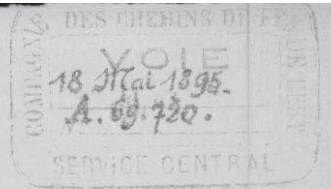 COMPAGNIE DES CHEMINS DE FER DE
VOIE
18 Mai 1895.
A. 69.720.
SERVICE CENTRAL